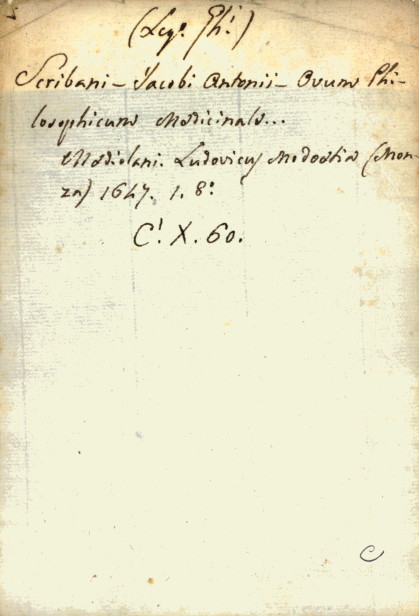 (Leg. Ph!)
Scribani - Jacobi Antonii - Ovum Phi-
losophicum Medicinale...
Mediolani. Ludovicus Modoetia (Mon-
za) 1647. 1. 8º
C! X. 60.
C